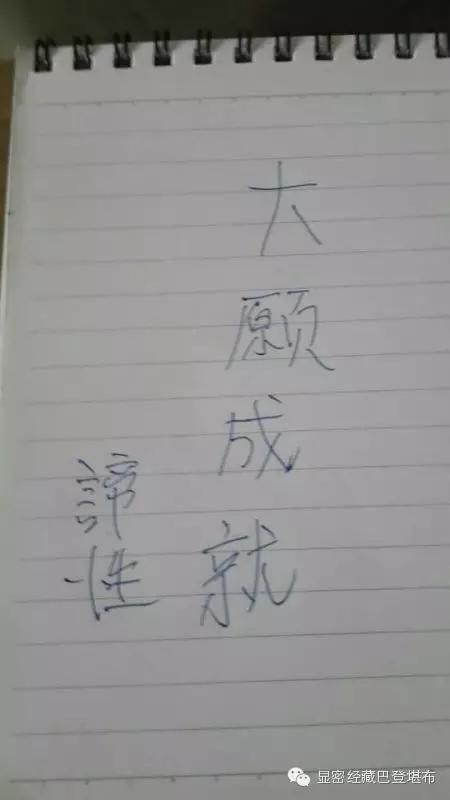 大愿成就
諦性
显密经藏巴登堪布